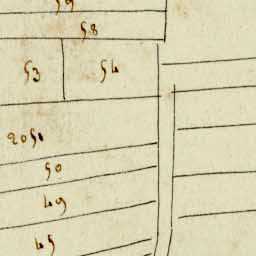 59
58
53 54
2051
50
49
45